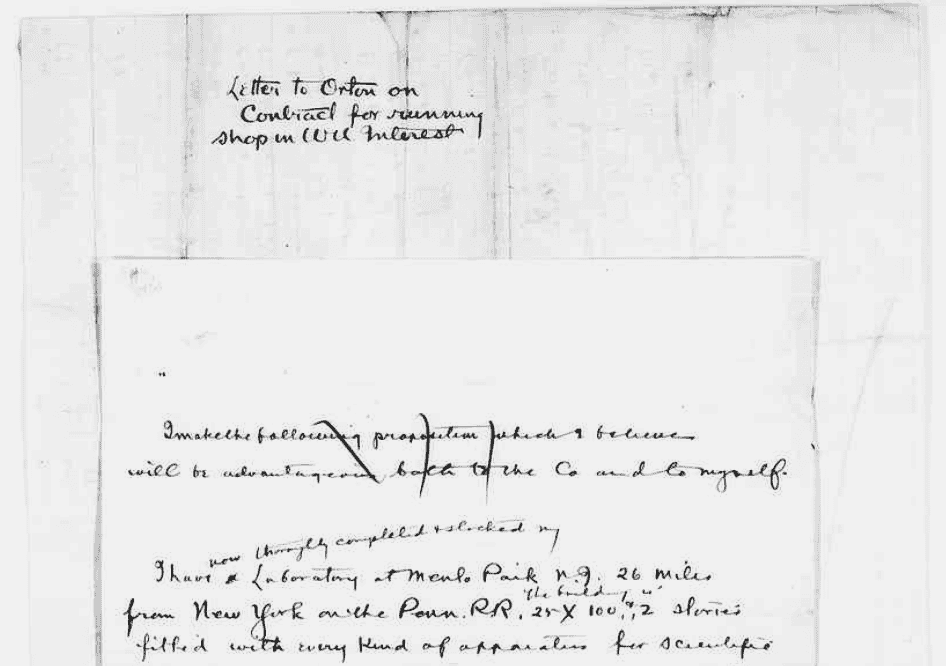 Letter to Orton on
Contract for running
shop in WU Interest
"
I make the following proposition which I believe
will be advantageous both to the Co and to myself.
now thoroughly completed & stocked my
I have a Laboratory at Menlo Park N.J. 26 miles
"the building is"
from New York on the Penn. RR. 25 X 100, 2 stories
fitted with every kind of apparatus for scientific